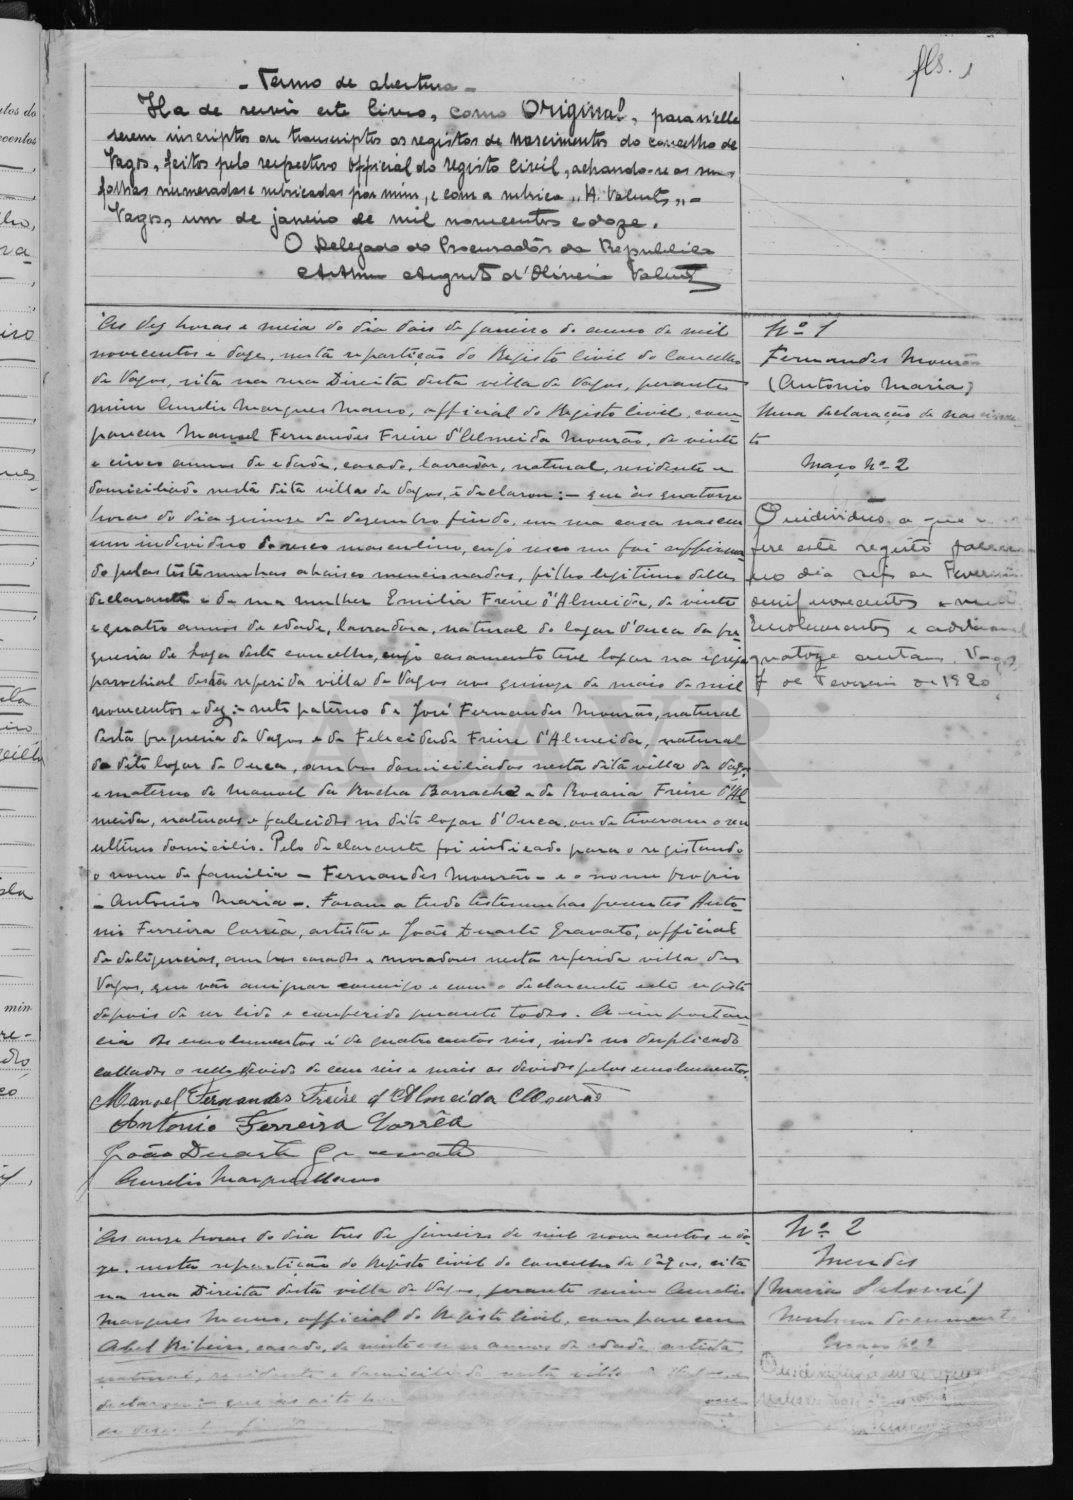 fls. 1
- Termo de abertura -
Ha de servir este livro, como Original, para n'elle
serem inscriptos ou transcriptos os registos de nascimentos do concelho de
Vagos, feitos pelo respectivo official do registo civil, achando-se as suas
folhas numeradas e rubricadas por mim, e com a rubrica "A. Valente" -
Vagos, um de janeiro de mil novecentos e doze.
O Delegado do Procurador da Republica
Arthur Augusto d'Oliveira Valente
Nº 1
Fernandes Mourão
(Antonio Maria)
Uma declaração de nascimen-
to
Maço Nº 2
O individuo a que se re-
fere este registo faleceu
no dia seis de Fevereiro
de mil novecentos e vinte
Emolumentos e addicional
quatoze centavos. Vagos,
7 de Fevereiro de 1920
As dez horas e meia do dia dois de janeiro do anno de mil
novecentos e doze, nesta repartição do Registo Civil do Concelho
de Vagos, sita na rua Direita desta villa de Vagos, perante
mim Aurelio Marques Mano, official do Registo Civil, com-
pareceu Manoel Fernandes Freire d'Almeida Mourão, de vinte
e cinco annos de edade, casado, lavrador, natural, residente e
domiciliado nesta dita villa de Vagos, e declarou: - que ás quatorze
horas do dia quinze de dezembro findo, em sua casa nasceu
um individuo do sexo masculino, cujo sexo me foi affirma-
do pelas testemunhas abaixo mencionadas, filho legitimo delle
declarante e de sua mulher Emilia Freire d'Almeida, de vinte
e quatro annos de edade, lavradora, natural do logar d'Ouca da fre-
guesia de Soza deste concelho, cujo casamento teve logar na igreja
parochial desta referida villa de Vagos aos quinze de maio de mil
novecentos e dez; - neto paterno de José Fernandes Mourão, natural
desta freguesia de Vagos e de Felicidade Freire d'Almeida, natural
do dito logar de Ouca, ambos domiciliados nesta dita villa de Vagos
e materno de Manoel da Rocha Barracha e de Rosaria Freire d'Al-
meida, naturaes e falecidos no dito logar d'Ouca, onde tiveram o seu
ultimo domicilio. Pelo declarante foi indicado para o registando
o nome de familia - Fernandes Mourão - e o nome proprio
- Antonio Maria -. Foram a tudo testemunhas presentes Anto-
nio Ferreira Corrêa, artista e João Duarte Gravato, official
de deligencias, ambos casados e moradores nesta referida villa de
Vagos, que vão assignar commigo e com o declarante este registo
depois de ser lido e conferido perante todos. A importan-
cia dos emolumentos é de quatrocentos reis, indo no duplicado
collados o sello devido de cem reis e mais os devidos pelos emolumentos.
Manoel Fernandes Freire d'Almeida Mourão
Antonio Ferreira Corrêa
João Duarte Gravato
Aurelio Marques Mano
Nº 2
Mendes
(Maria)
Nenhum documento
Maço Nº 2
As onze horas do dia tres de janeiro de mil novecentos e do-
ze, nesta repartição do Registo Civil do concelho de Vagos, sita
na rua Direita desta villa de Vagos, perante mim Aurelio
Marques Mano, official do Registo Civil, compareceu
Abel Ribeiro, casado, de vinte e annos de edade, artista
natural, residente e domiciliado nesta villa de Vagos, e
declarou: - que ás oito
de dezembro findo